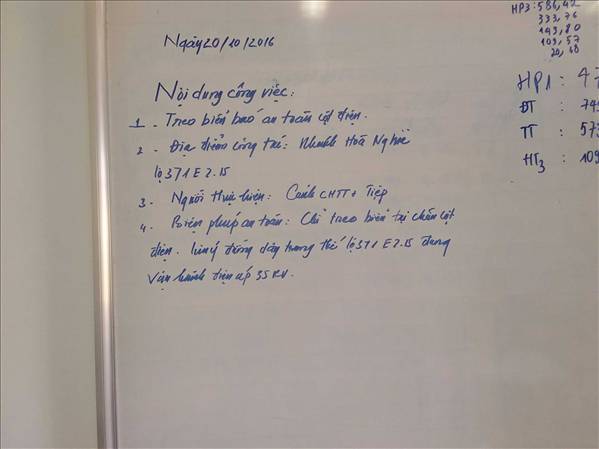 Ngày 20/10/2016
Nội dung công việc:
1. Treo biển báo an toàn cột điện.
2. Địa điểm công tác: Nhánh Hoà Nghĩa
lộ 371 E 2.15
3. Người thực hiện: Cảnh CHTT + Tiếp
4. Biện pháp an toàn: Chỉ treo biển tại chân cột
điện. Lưu ý đường dây trung thế lộ 371 E 2.15 đang
vận hành điện áp 35KV.
HP3: 586,42
333,76
143,80
109,57
20,48
HP1: 47
ĐT : 749
TT : 573
HT3 : 109